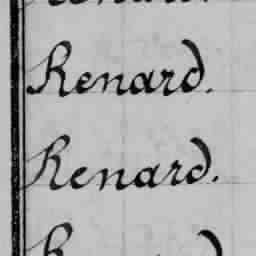 Renard.
Renard.